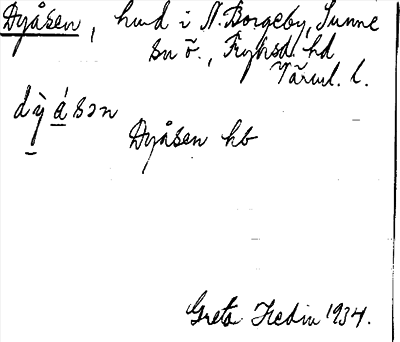 Dyåsen, hmd i N. Borgeby, Sunne
sn ö., Fryksd. hd
Värml. l.
dỳ ásən
Dyåsen hb
Greta Hedin 1934.